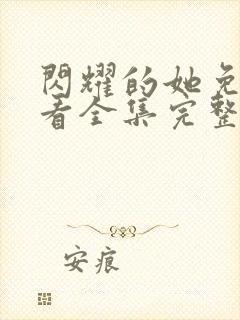 閃耀的她免
看全集完整
安痕